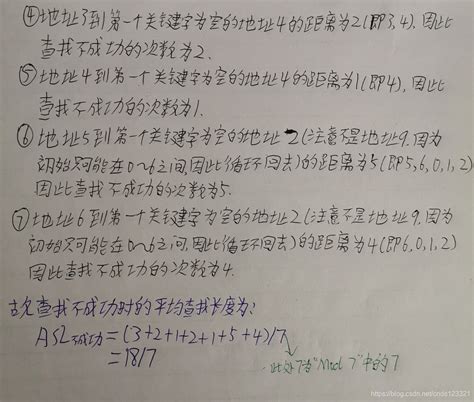 ④地址3到第一个关键字为空的地址4的距离为2(即3,4),因此
查找不成功的次数为2.
⑤地址4到第一个关键字为空的地址4的距离为1(即4),因此
查找不成功的次数为1.
⑥地址5到第一个关键字为空的地址2(注意不是地址9.因为
初始只可能在0~6之间,因此循环回去)的距离为5(即5,6,0,1,2)
因此查找不成功的次数为5.
⑦地址6到第一个关键字为空的地址2(注意不是地址9.因为
初始只可能在0~6之间,因此循环回去)的距离为4(即6,0,1,2)
因此查找不成功的次数为4.
故查找不成功时的平均查找长度为:
ASL不成功=(3+2+1+2+1+5+4)/7
=18/7
此处7为"Mod 7"中的7
https://blog.csdn.net/cndo123321